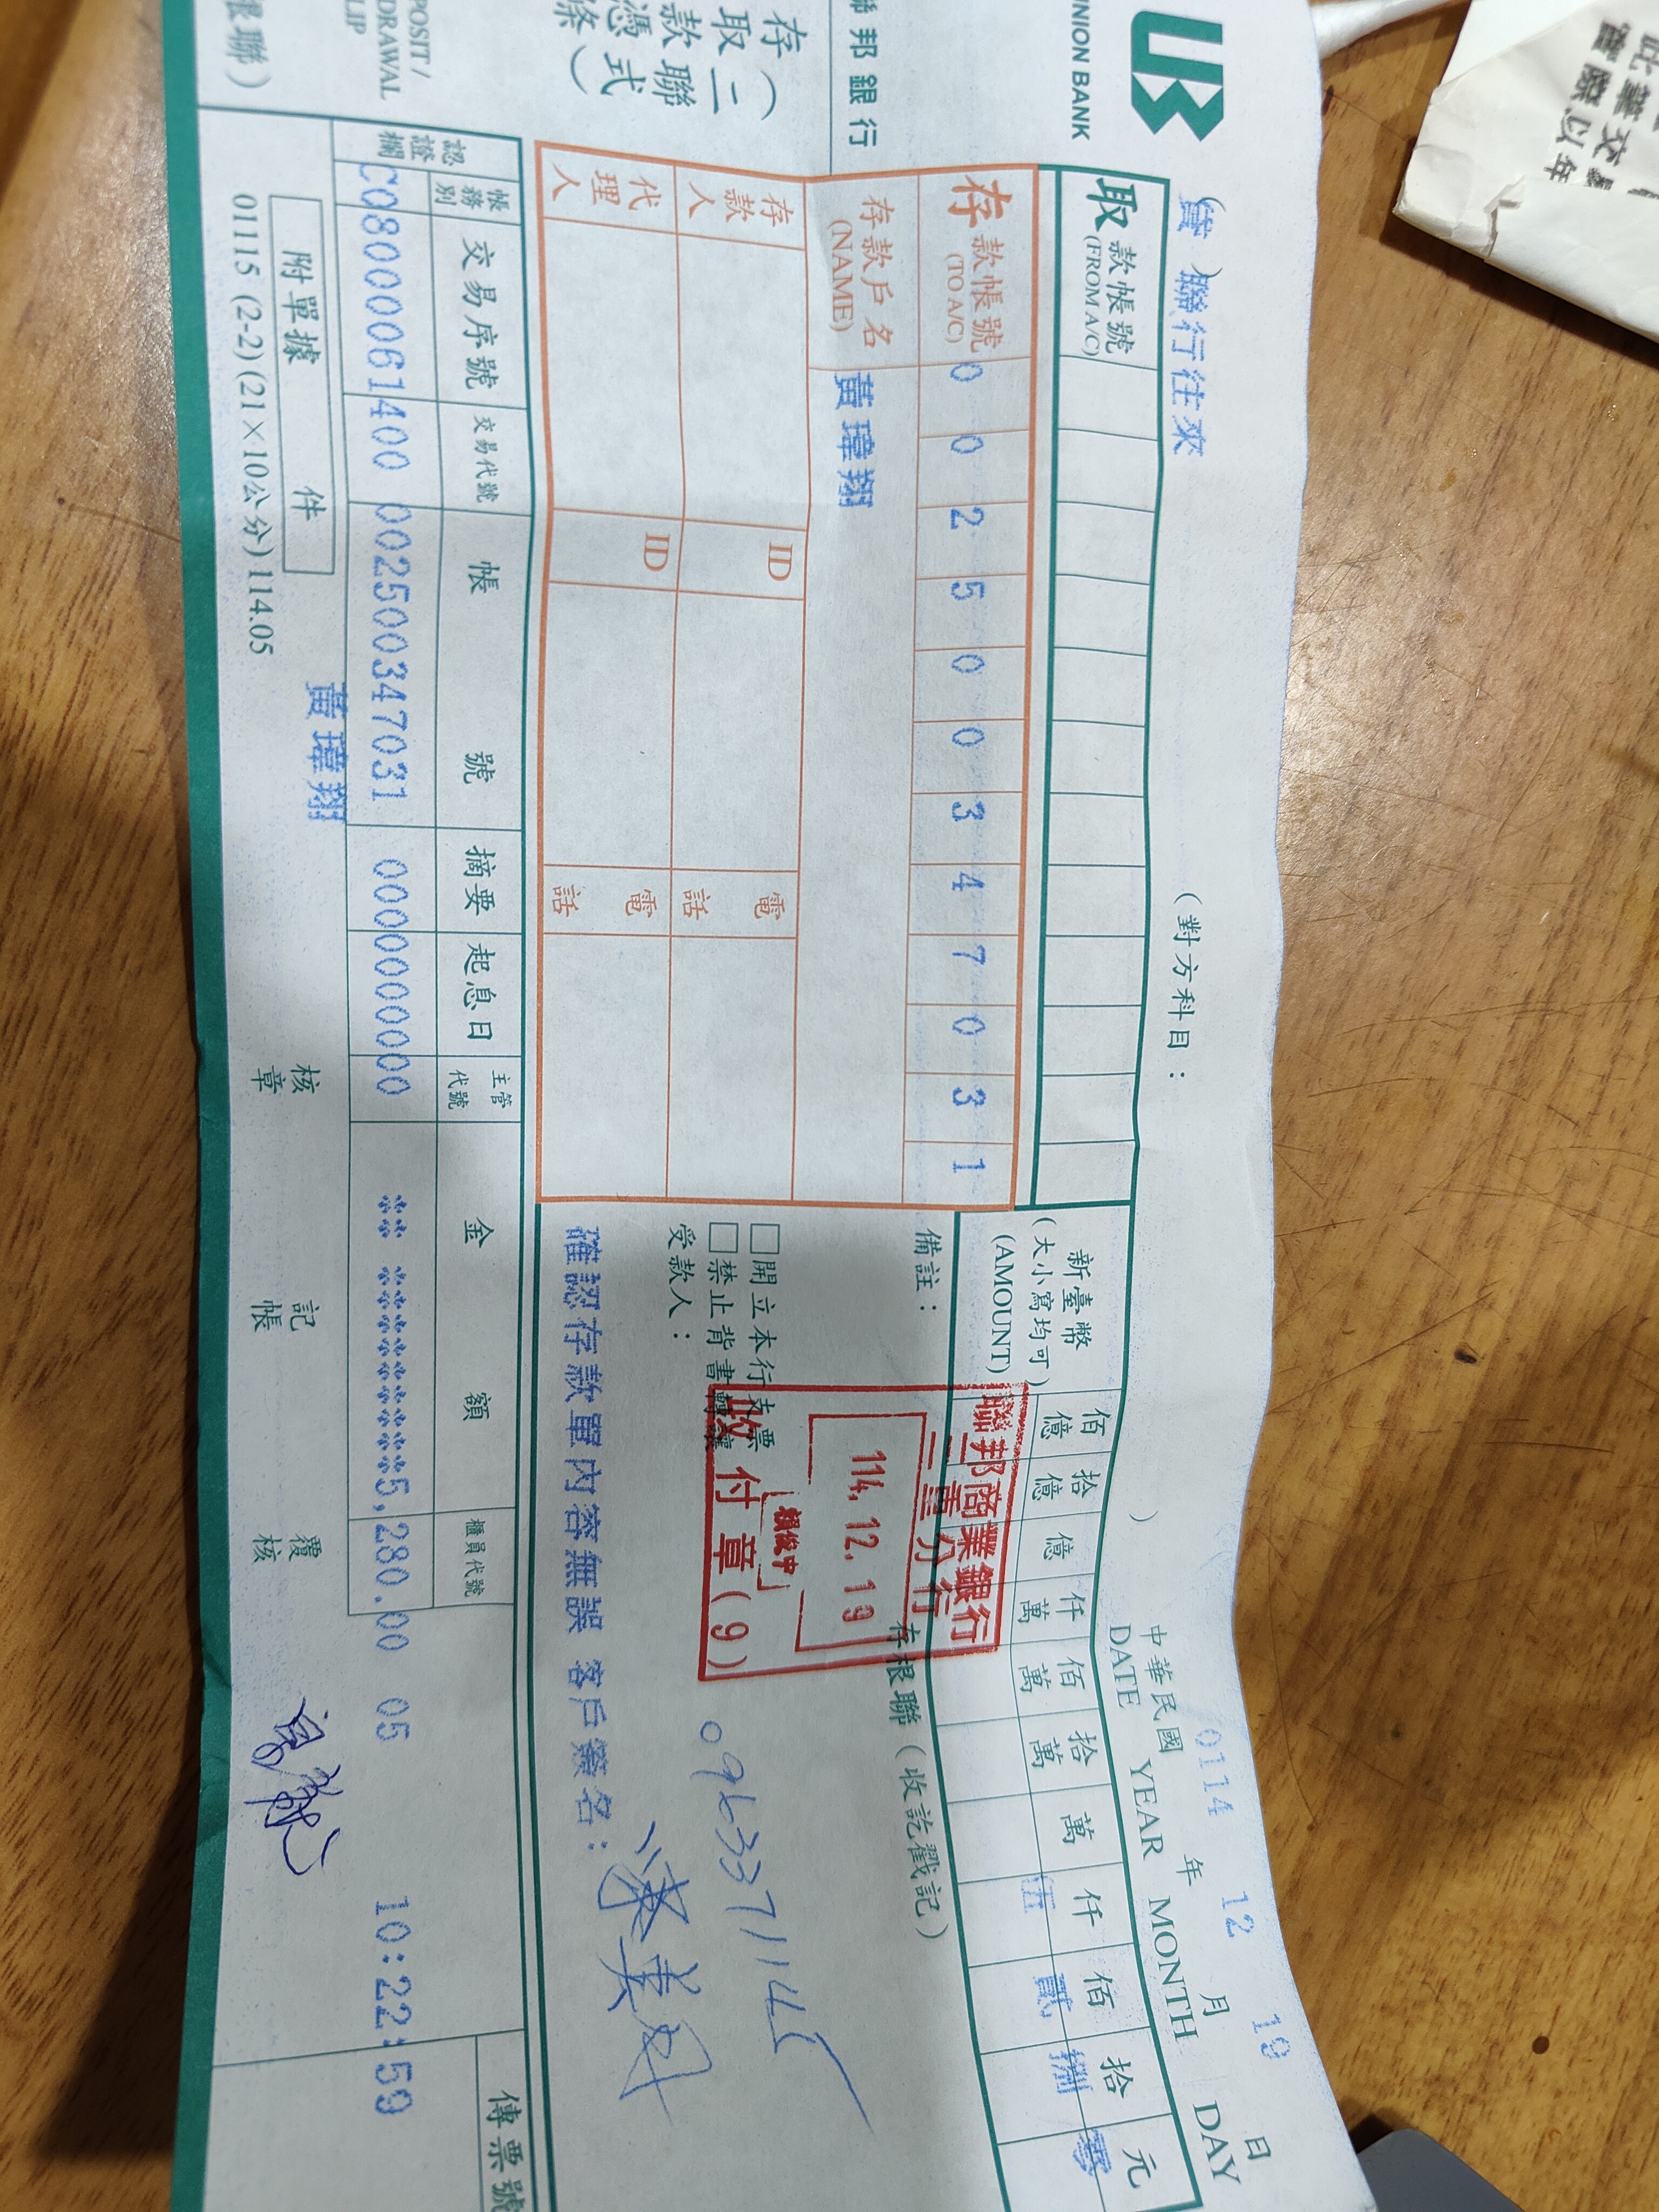 UB
UNION BANK
聯邦銀行
存(二
取聯
款式
憑)
條
POSIT /
DRAWAL
LIP
根聯)
(貸 聯行往來
(對方科目:
)
中華民國 0114 年 12 月 19 日
DATE YEAR MONTH DAY
取款帳號
(FROM A/C)
存款帳號
(TO A/C)
0 0 2 5 0 0 3 4 7 0 3 1
存款戶名
(NAME)
黃瑋翔
存款人 ID 電話
代理人 ID 電話
新臺幣
(大小寫均可)
(AMOUNT)
佰億 拾億 億 仟萬 佰萬 拾萬 萬 仟 佰 拾 元
伍 貳 捌 零
備註:
存根聯(收訖戳記)
聯邦商業銀行
三重分行
114. 12. 19
收付章(9)
□開立本行支票
□禁止背書轉讓
受款人:
0963371145
確認存款單內容無誤 客戶簽名:
認證欄
帳務別 交易序號 交易代號 帳號 摘要 起息日 主管代號 金額 櫃員代號
C0800061400 002500347031 0000000000 ** *********5,280.00 05 10:22:59
傳票號
黃瑋翔
附單據 件
核章
記帳
覆核
01115 (2-2) (21×10公分) 114.05
此業交易
實際以年